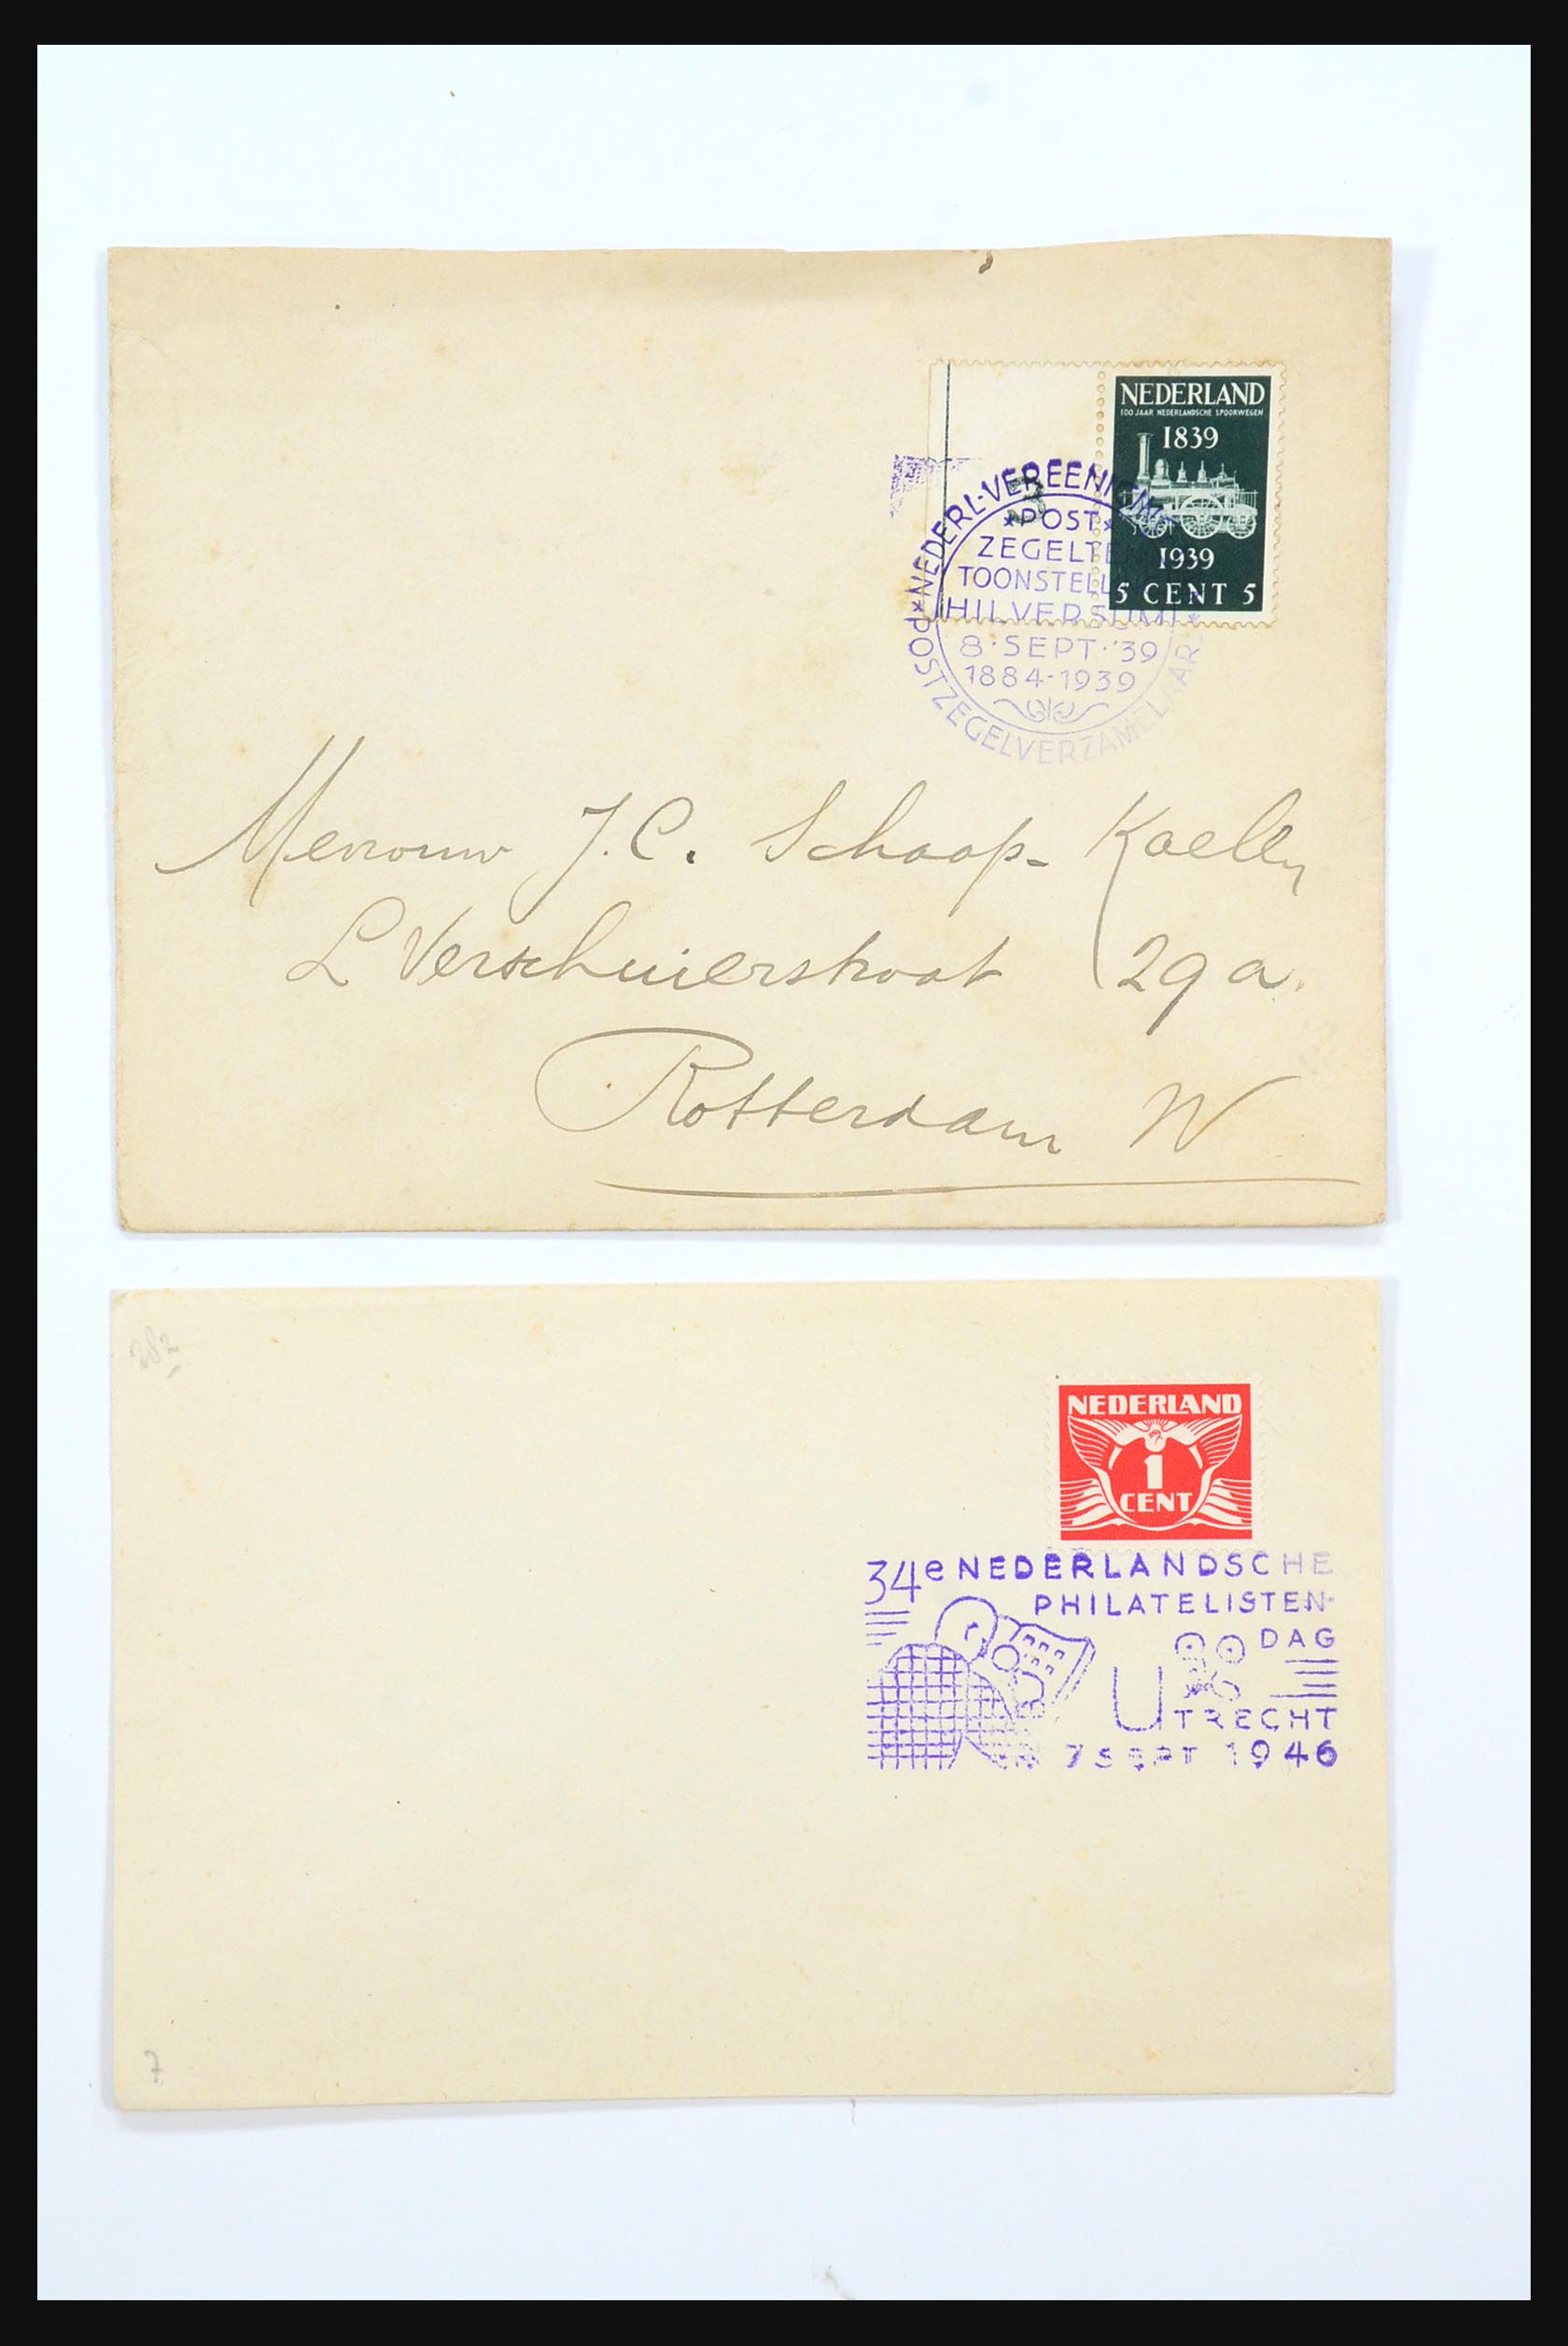 NEDERLAND
100 JAAR NEDERLANDSCHE SPOORWEGEN
1839
1939
5 CENT 5
3
*NEDERL·VEREENIG
POSTZEGELVERZAMELAARS
*POST*
ZEGELTE
TOONSTELL
HILVERSUM
8·SEPT·'39
1884-1939
Mevrouw J.C. Schaap-
L Verschuierstraat 29a.
Rotterdam W
282
NEDERLAND
1
CENT
34e NEDERLANDSCHE
PHILATELISTEN-
DAG
UTRECHT
7 SEPT 1946
7